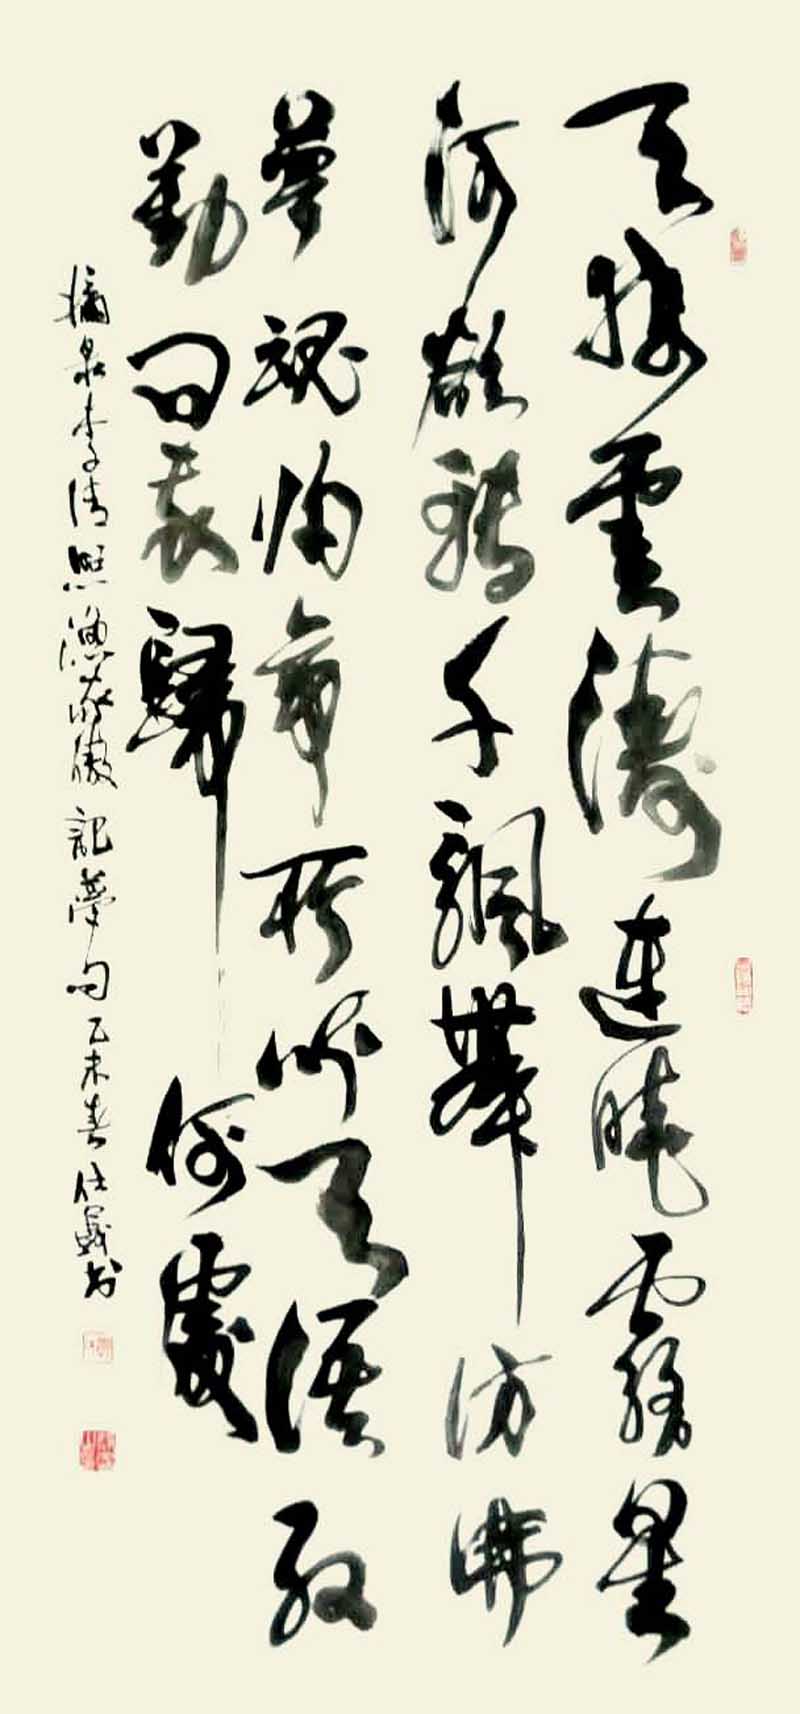 天接雲濤連曉霧星
河欲轉千颿舞仿佛
夢魂歸帝所聞天語殷
勤問我歸何處
摘录李清照漁家傲記夢句乙未春仕书